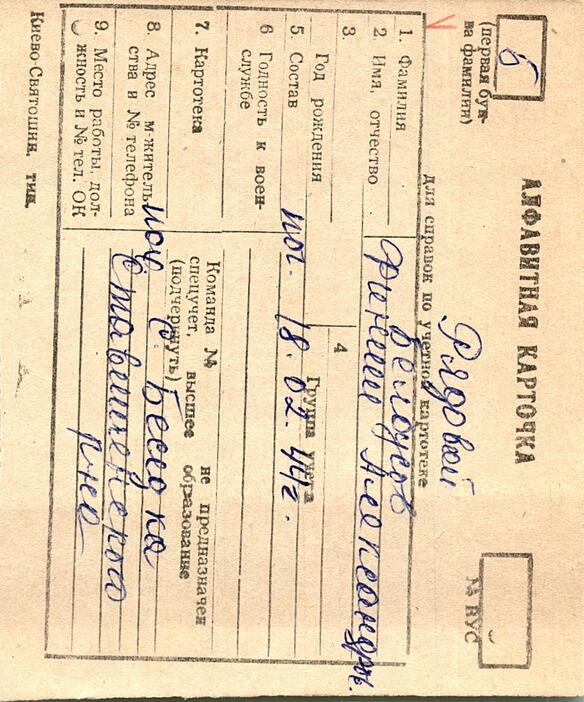 АЛФАВИТНАЯ КАРТОЧКА
Б
(первая бук-
ва фамилии)
№ ВУС
Рядовой
для справок по учетной картотеке
1. Фамилия Белоусов
2. Имя, отчество Филипп Александр.
3.
4
Год рождения
Группа учета
5. Состав пог. 18.02.44г.
6 Годность к воен-
службе
7. Картотека
Команда № не предназначен
спецучет, высшее образование
(подчеркнуть)
8. Адрес м-житель-
ства и № телефона
пох. с. Беседка
Ставищенского
р-на
9. Место работы, дол-
жность и № тел. ОК
Киево-Святошин. тип.